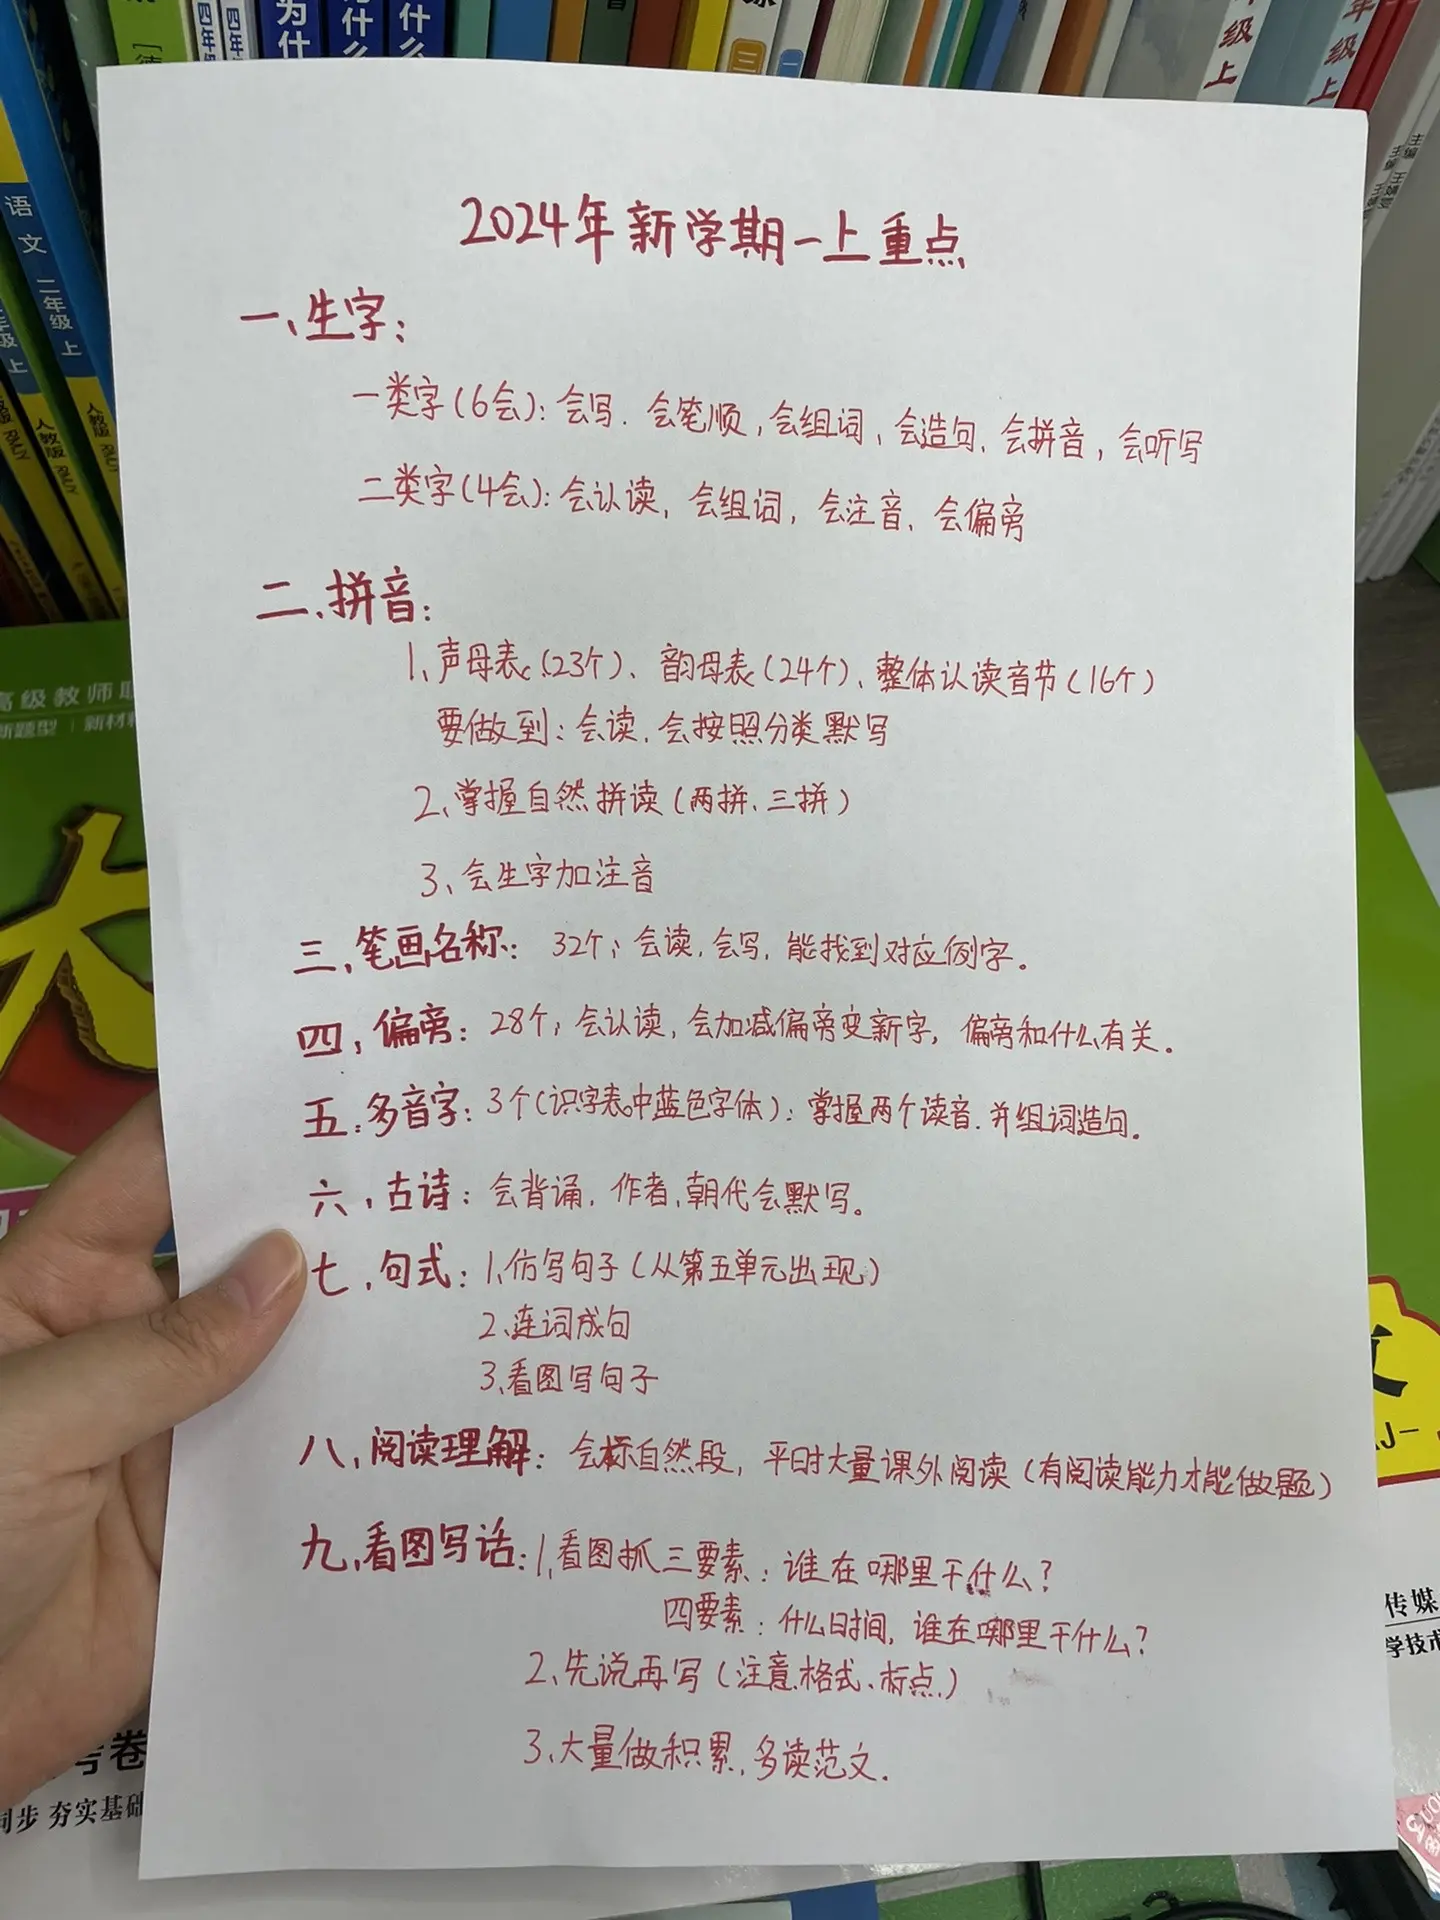 为什
为什么
什么
四年级
四年
三
一
级上
年级上
主编
主编
王
语文 二年级 上
年级 上
人教版 RMJY
人教版 RMJY
2024年新学期一上重点
一、生字:
一类字(6会): 会写、会笔顺, 会组词, 会造句、会拼音, 会听写
二类字(4会): 会认读, 会组词, 会注音、会偏旁
二、拼音:
1、声母表(23个)、韵母表(24个)、整体认读音节(16个)
要做到: 会读, 会按照分类默写
2、掌握自然拼读(两拼、三拼)
3、会生字加注音
三、笔画名称: 32个; 会读, 会写, 能找到对应例字。
四, 偏旁: 28个; 会认读, 会加减偏旁变新字, 偏旁和什么有关。
五: 多音字: 3个(识字表中蓝色字体): 掌握两个读音, 并组词造句。
六, 古诗: 会背诵, 作者, 朝代会默写。
七, 句式: 1、仿写句子(从第五单元出现)
2、连词成句
3、看图写句子
八, 阅读理解: 会标自然段, 平时大量课外阅读(有阅读能力才能做题)
九, 看图写话: 1, 看图抓三要素: 谁在哪里干什么?
四要素: 什么时间, 谁在哪里干什么?
2、先说再写(注意格式、标点)
3、大量做积累, 多读范文.
高级教师
新题型 | 新材料
考卷
同步 夯实基础
传媒
学技术